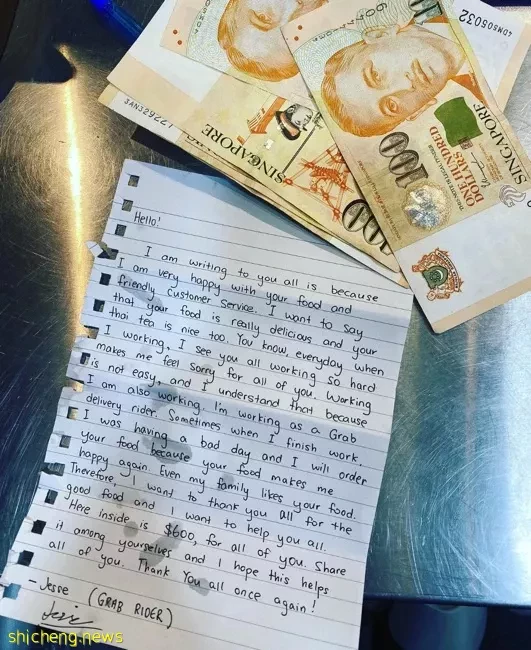 4DMS05032
3AN329227
SINGAPORE
100
SINGAPORE
100
ONE HUNDRED
DOLLARS
Hello!
I am writing to you all is because
I am very happy with your food and
friendly customer service. I want to say
that your food is really delicious and your
thai tea is nice too. You know, everyday when
I working, I see you all working so hard
makes me feel sorry for all of you. Working
is not easy, and I understand that because
I am also working. I'm working as a Grab
delivery rider. Sometimes when I finish work,
I was having a bad day and I will order
your food because your food makes me
happy again. Even my family likes your food.
Therefore, I want to thank you all for the
good food and I want to help you all.
Here inside is $600, for all of you. Share
it among yourselves and I hope this helps
all of you. Thank You all once again!
- Jesse (GRAB RIDER)
shicheng.news